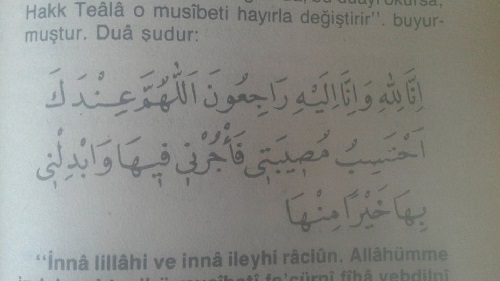 bu duâyı okursa,
Hakk Teâlâ o musîbeti hayırla değiştirir''. buyur-
muştur. Duâ şudur:
اِنَّا لِلّٰهِ وَاِنَّا اِلَيْهِ رَاجِعُونَ اَللّٰهُمَّ عِنْدَكَ
اَحْتَسِبُ مُصِيبَتِي فَأْجُرْنِي فِيهَا وَابْدِلْنِي
بِهَا خَيْرًا مِنْهَا
''İnnâ lillâhi ve innâ ileyhi râciûn. Allâhümme
fe'cürnî fîhâ vebdilnî